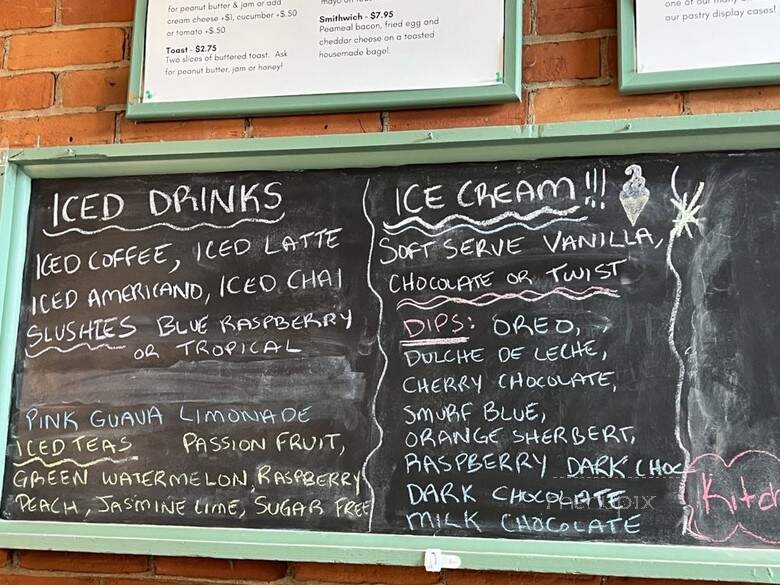 for peanut butter & jam or add
cream cheese +$1, cucumber +$.50
or tomato +$.50
Toast - $2.75
Two slices of buttered toast. Ask
for peanut butter, jam or honey!
Smithwich - $7.95
Peameal bacon, fried egg and
cheddar cheese on a toasted
housemade bagel.
our pastry display cases!
ICED DRINKS
ICED COFFEE, ICED LATTE
ICED AMERICANO, ICED CHAI
SLUSHIES BLUE RASPBERRY
OR TROPICAL
PINK GUAVA LIMONADE
ICED TEAS PASSION FRUIT,
GREEN WATERMELON, RASPBERRY
PEACH, JASMINE LIME, SUGAR FREE
ICE CREAM!!!
SOFT SERVE VANILLA,
CHOCOLATE OR TWIST
DIPS: OREO,
DULCHE DE LECHE,
CHERRY CHOCOLATE,
SMURF BLUE,
ORANGE SHERBERT,
RASPBERRY DARK CHOC
DARK CHOCOLATE
MILK CHOCOLATE
Kitch